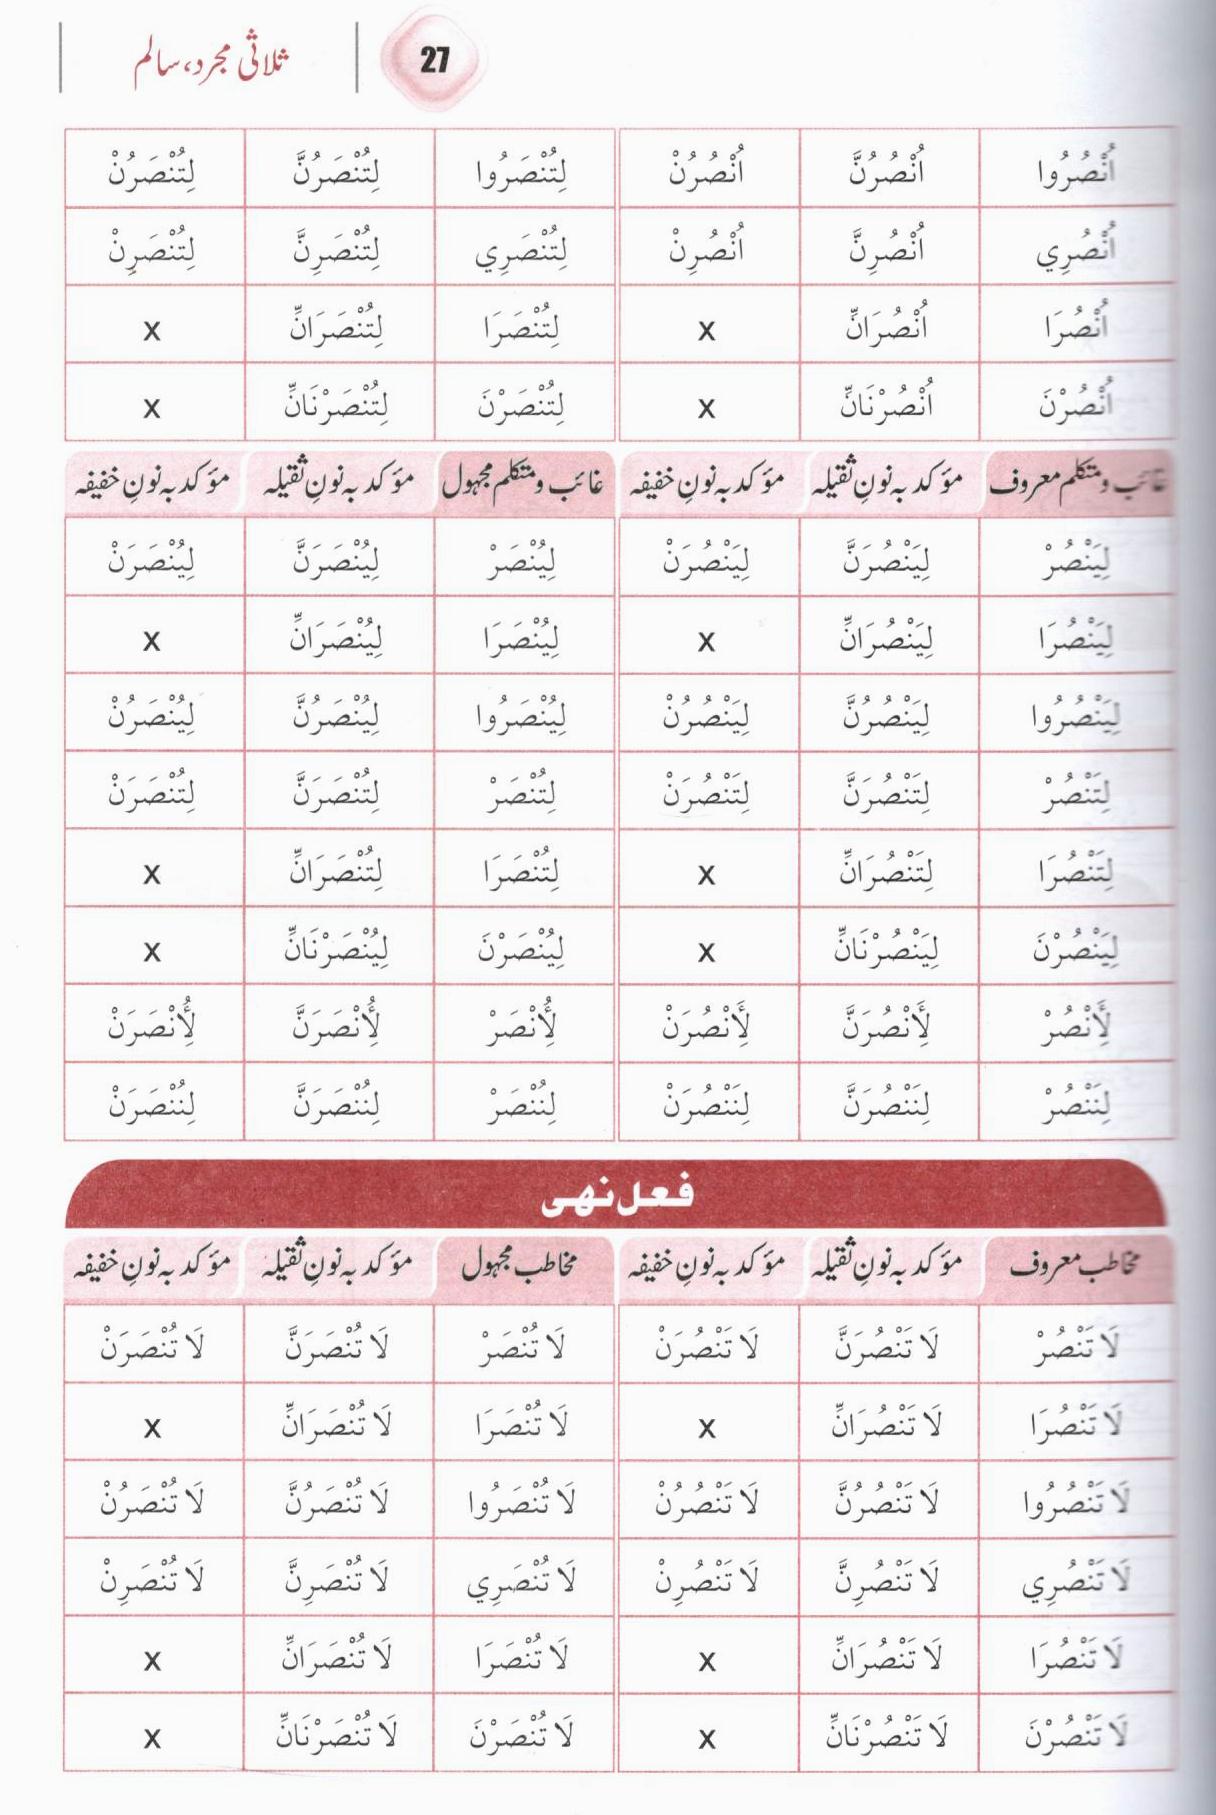 27 ثلاثی مجرد، سالم
اُنْصُرُوا اُنْصُرُنَّ اُنْصُرُنْ لِتُنْصَرُوا لِتُنْصَرُنَّ لِتُنْصَرُنْ
اُنْصُرِي اُنْصُرِنَّ اُنْصُرِنْ لِتُنْصَرِي لِتُنْصَرِنَّ لِتُنْصَرِنْ
اُنْصُرَا اُنْصُرَانِّ x لِتُنْصَرَا لِتُنْصَرَانِّ x
اُنْصُرْنَ اُنْصُرْنَانِّ x لِتُنْصَرْنَ لِتُنْصَرْنَانِّ x
غائب و متکلم معروف مؤکد بہ نونِ ثقیلہ مؤکد بہ نونِ خفیفہ غائب و متکلم مجہول مؤکد بہ نونِ ثقیلہ مؤکد بہ نونِ خفیفہ
لِيَنْصُرْ لِيَنْصُرَنَّ لِيَنْصُرَنْ لِيُنْصَرْ لِيُنْصَرَنَّ لِيُنْصَرَنْ
لِيَنْصُرَا لِيَنْصُرَانِّ x لِيُنْصَرَا لِيُنْصَرَانِّ x
لِيَنْصُرُوا لِيَنْصُرُنَّ لِيَنْصُرُنْ لِيُنْصَرُوا لِيُنْصَرُنَّ لِيُنْصَرُنْ
لِتَنْصُرْ لِتَنْصُرَنَّ لِتَنْصُرَنْ لِتُنْصَرْ لِتُنْصَرَنَّ لِتُنْصَرَنْ
لِتَنْصُرَا لِتَنْصُرَانِّ x لِتُنْصَرَا لِتُنْصَرَانِّ x
لِيَنْصُرْنَ لِيَنْصُرْنَانِّ x لِيُنْصَرْنَ لِيُنْصَرْنَانِّ x
لِأَنْصُرْ لِأَنْصُرَنَّ لِأَنْصُرَنْ لِأُنْصَرْ لِأُنْصَرَنَّ لِأُنْصَرَنْ
لِنَنْصُرْ لِنَنْصُرَنَّ لِنَنْصُرَنْ لِنُنْصَرْ لِنُنْصَرَنَّ لِنُنْصَرَنْ
فعل نہی
مخاطب معروف مؤکد بہ نونِ ثقیلہ مؤکد بہ نونِ خفیفہ مخاطب مجہول مؤکد بہ نونِ ثقیلہ مؤکد بہ نونِ خفیفہ
لَا تَنْصُرْ لَا تَنْصُرَنَّ لَا تَنْصُرَنْ لَا تُنْصَرْ لَا تُنْصَرَنَّ لَا تُنْصَرَنْ
لَا تَنْصُرَا لَا تَنْصُرَانِّ x لَا تُنْصَرَا لَا تُنْصَرَانِّ x
لَا تَنْصُرُوا لَا تَنْصُرُنَّ لَا تَنْصُرُنْ لَا تُنْصَرُوا لَا تُنْصَرُنَّ لَا تُنْصَرُنْ
لَا تَنْصُرِي لَا تَنْصُرِنَّ لَا تَنْصُرِنْ لَا تُنْصَرِي لَا تُنْصَرِنَّ لَا تُنْصَرِنْ
لَا تَنْصُرَا لَا تَنْصُرَانِّ x لَا تُنْصَرَا لَا تُنْصَرَانِّ x
لَا تَنْصُرْنَ لَا تَنْصُرْنَانِّ x لَا تُنْصَرْنَ لَا تُنْصَرْنَانِّ x